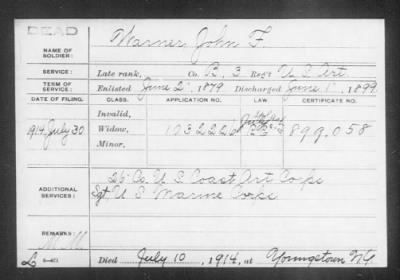 DEAD
NAME OF SOLDIER: Warner, John F.
SERVICE: Late rank, Co. B, 3 Reg't U S Art.
TERM OF SERVICE: Enlisted June 2, 1879 Discharged June 1, 1899
DATE OF FILING. CLASS. APPLICATION NO. LAW. CERTIFICATE NO.
Invalid,
1914 July 30 Widow, 1032226 899.058
Minor,
ADDITIONAL SERVICES: 26 Co. U S Coast Art Corps
Sgt. U S Marine Corps
REMARKS:
Died July 10, 1914, at Youngstown N.Y.